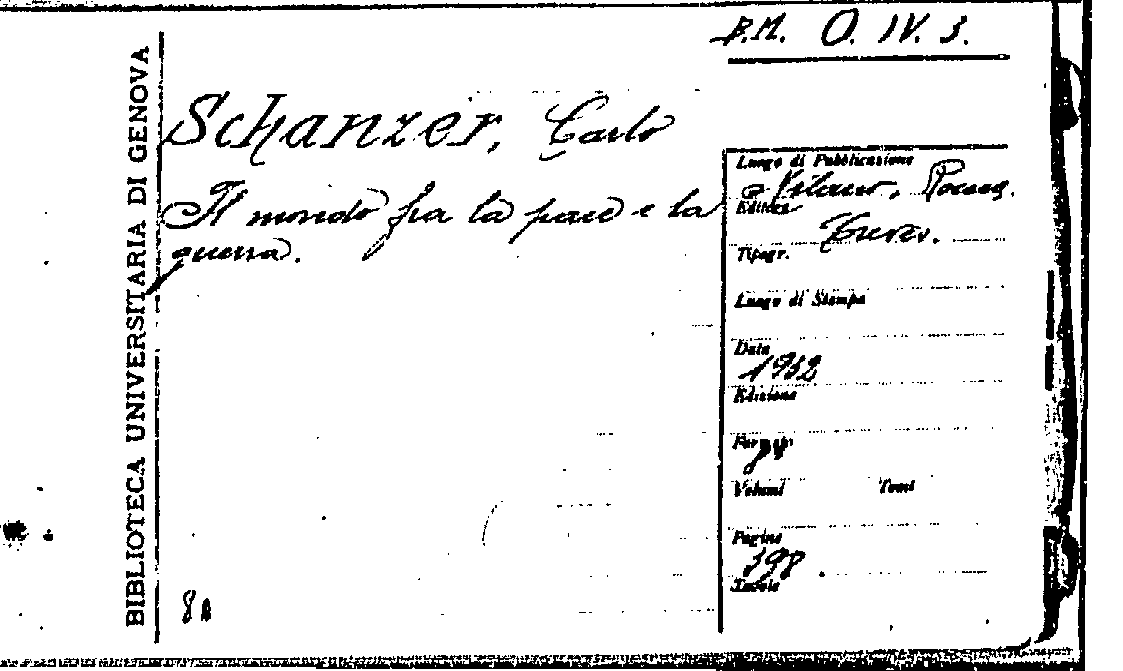 B.M. O. IV. 3.
BIBLIOTECA UNIVERSITARIA DI GENOVA
Schanzer, Carlo
Il mondo fra la pace e la
guerra.
Luogo di Pubblicazione
Milano, Roma.
Editore
Treves.
Tipogr.
Luogo di Stampa
Data
1932
Edizione
Formato
8º
Volumi Tomi
Pagine
398.
Tavole